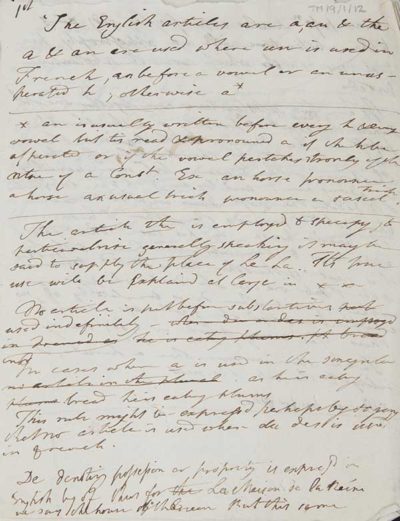 1st
TM19/1/12
The English articles are a, an & the
a & an are used where un is used in
French, an before a vowel or an unas-
perated h, otherwise a x
x an is usually written before every h & every
vowel but is read & pronounced a if the h be
asperated or if the vowel partakes strongly of the
of a Const. Ex an horse pronounce
a horse an usual trick pronounce a
trick
The article the is employed to specify, to
particularise generally speaking it may be
said to supply the place of le la. Its true
use will be explaind at large in x x
No article is put before substantives
used indefinitely
in he is eating plums
In cases when a is used in the singular
no article in the plural as he is eating
bread he is eating plums
This rule might be expressed perhaps by saying
that no article is used when du des is used
in French.
De denoting possession or property is expressed in
English by of thus for the La Maison de la Reine
we say the house of the Queen But this same